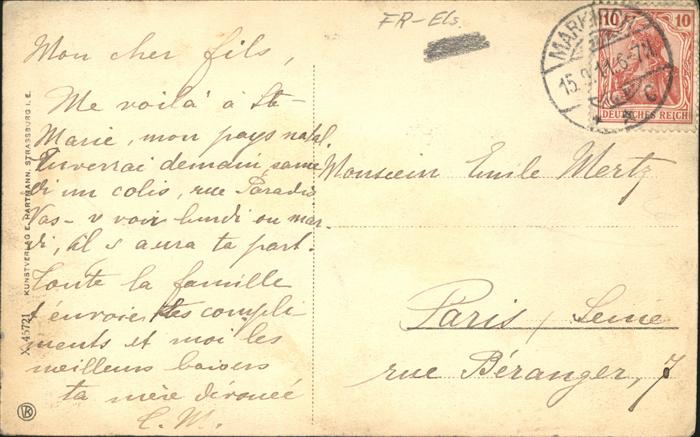 FR-Els.
Mon cher fils,
Me voilà à Ste-
Marie, mon pays natal.
J'enverrai demain, same-
di un colis, rue Paradis
Vas-y voir lundi ou mar-
di, il s aura ta part.
Toute la famille
t'envoie ses compli-
ments et moi les
meilleurs baisers
ta mère dévouée
E. M.
Monsieur Emile Mertz
Paris, Seine
rue Béranger, 7
MARKIRCH
15.9.11.6-7N.
C
10 10
DEUTSCHES REICH
X. 45721 KUNSTVERLAG E. HARTMANN, STRASSBURG I. E.